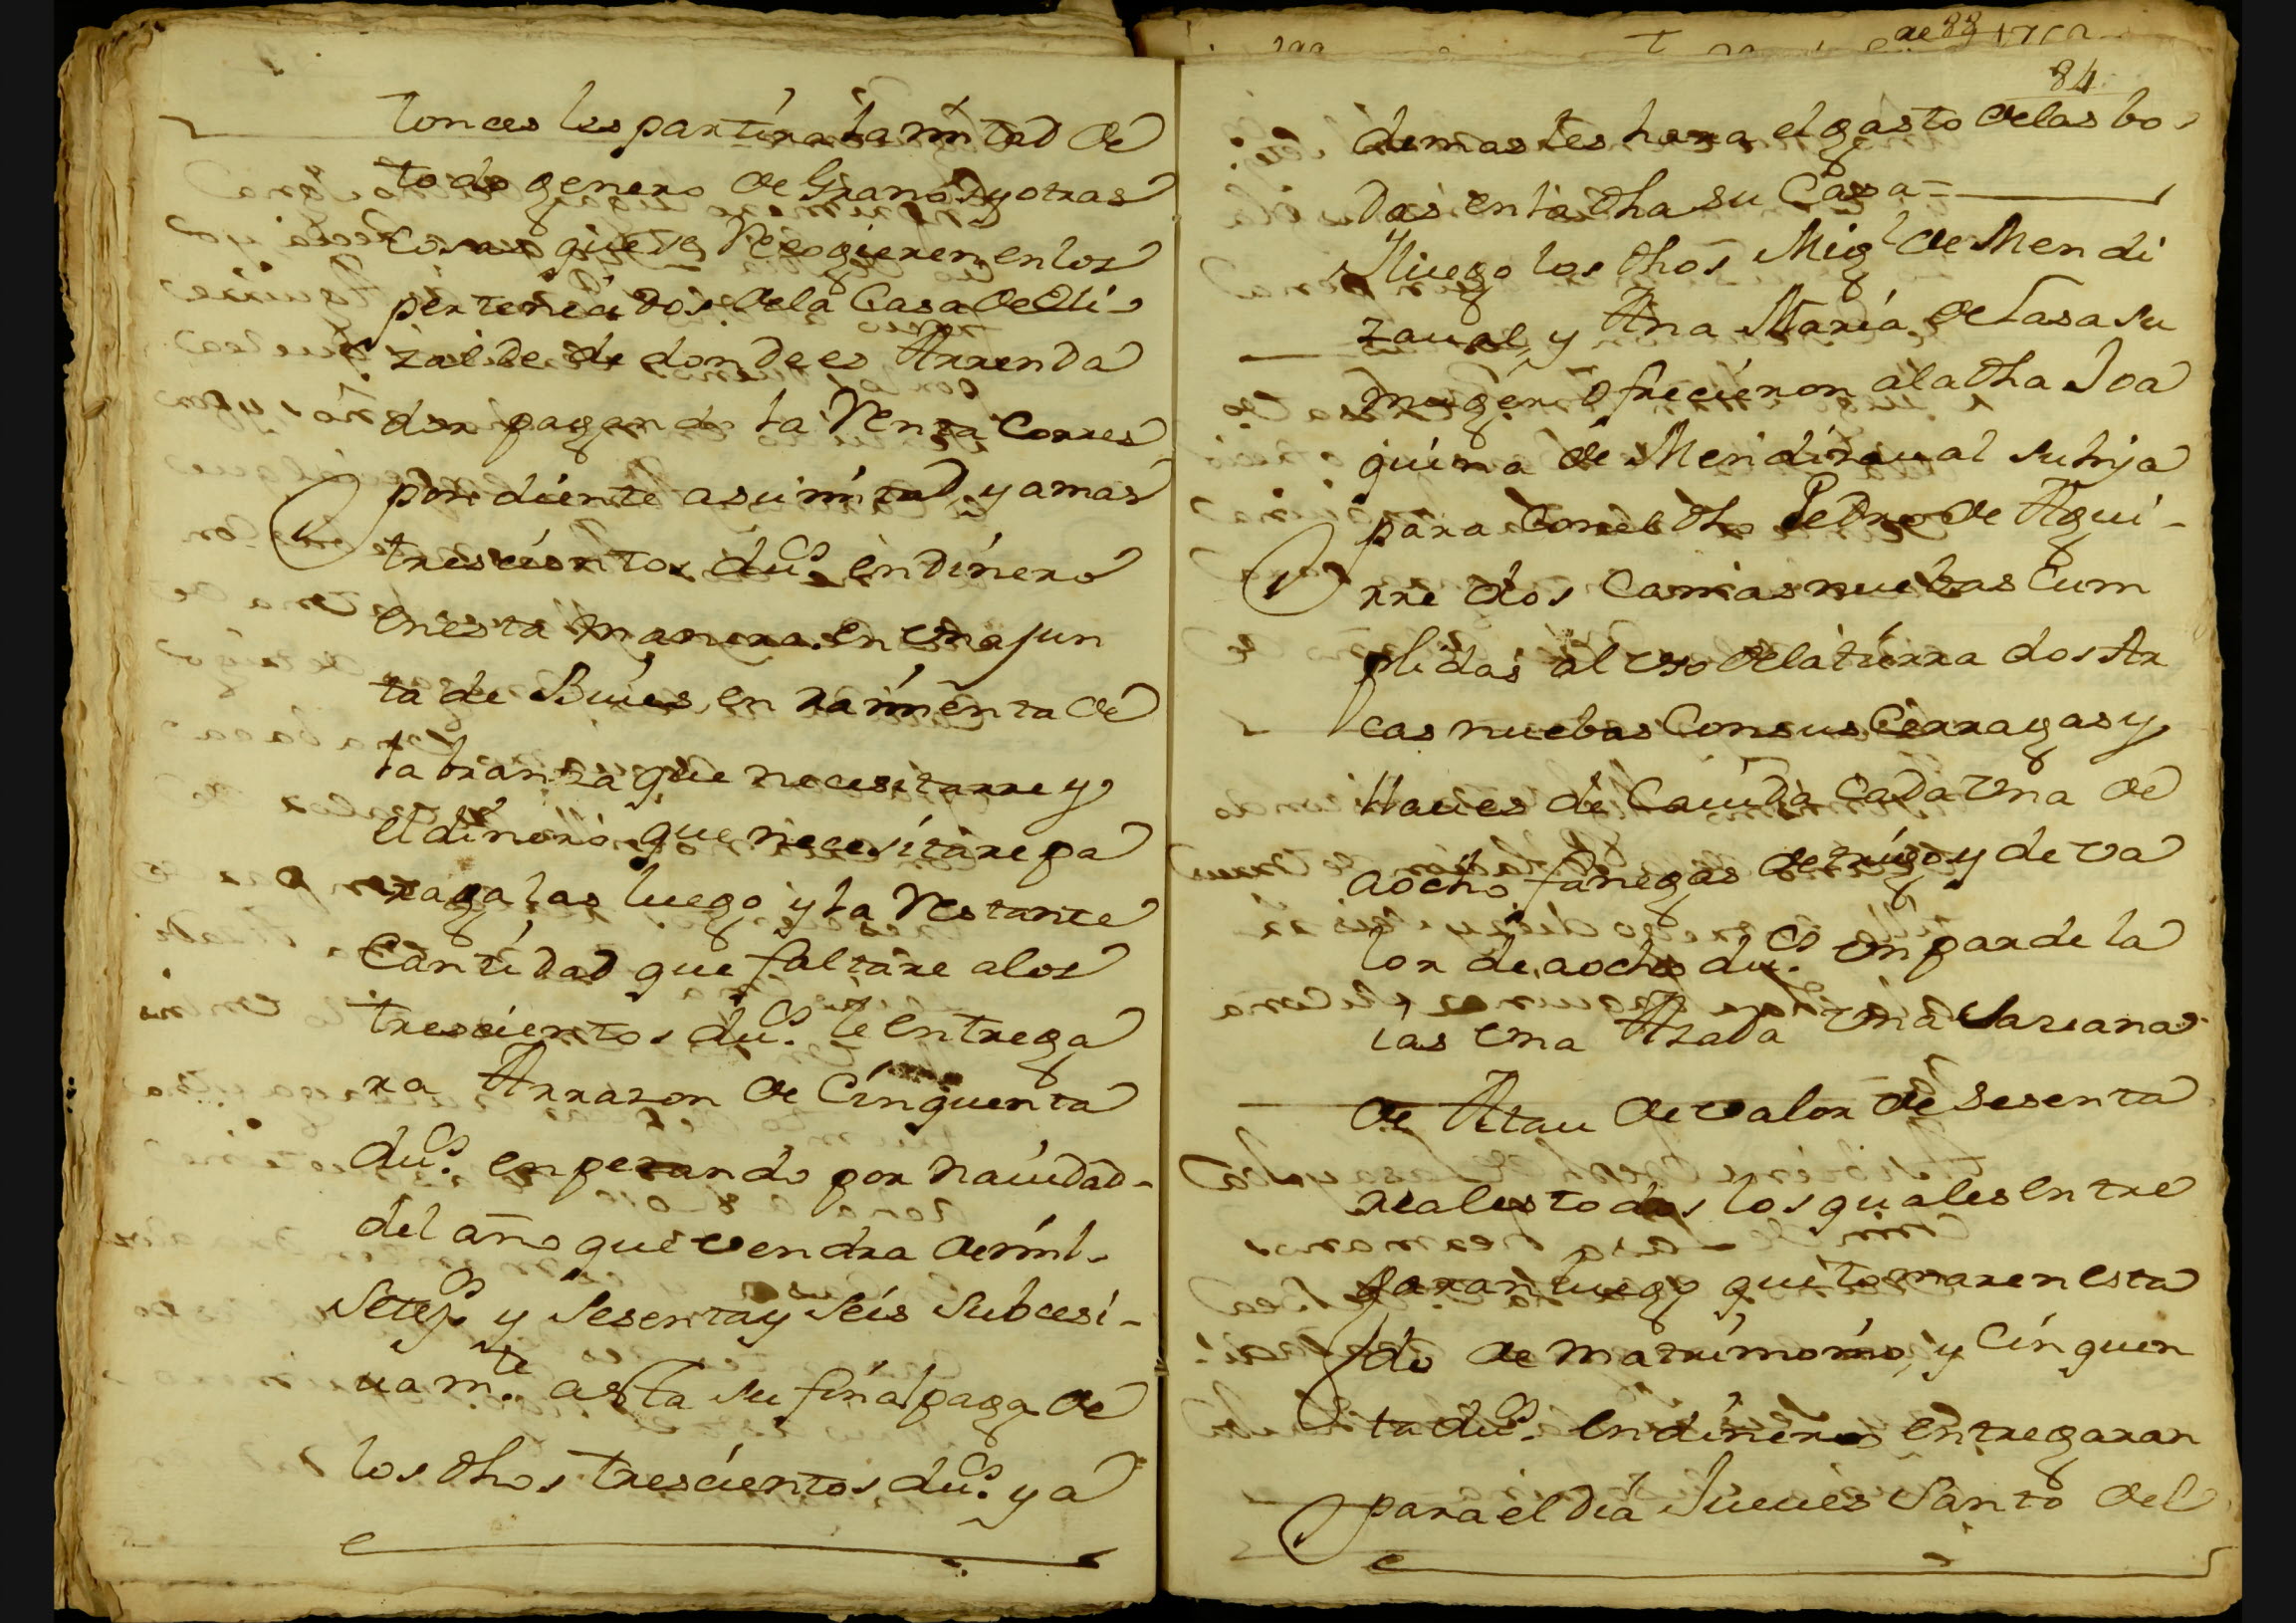 tonces les partira la mitad de
todo genero de Granos y otras
cosas que se Recogieren en los
pertenecidos de la Casa de Eli-
zalde de donde es Arrenda
dor pagando la Renta Corres
pondiente asu mitad, y amas
trescientos du.s en dinero
en esta manera. en una jun
ta de Buies, en raimenta de
labranza que necesitarre y
el dinero que necesitare pa
ragalas luego y la Restante
Cantidad que faltare alos
trescientos du.s le entrega
ra Arrazon de Cinquenta
du.s enpezando por Nauidad-
del año que vendra de mil-
Setez.s y Sesenta y Seis Subcesi-
uam.te asta su final paga de
los dhos trescientos du.s y a
de 88
84
demas les hara el gasto delas bo
das en la dha su Casa=
Y luego los dhos Mig.l de Mendi
zaual, y Ana Maria de Lasa su
muger ofrecieron ala dha Joa
quina de Mendizaual su hija
para con el dho Pedro de Agui-
rre dos Camas nuebas Cum
plidas al uso dela tierra dos Ar
cas nuebas Con sus Cerragas y
llaues de Cauida Cada una de
aocho fanegas de trigo y de va
lor de aocho du.s un par de la
ias una Azada una Sariana
de Atau de valor de Sesenta
reales todos los quales entre
garan luego que tomaren esta
do de matrimonio, y Cinquen
ta du.s en dineros entregaran
para el dia Jueues Santo del